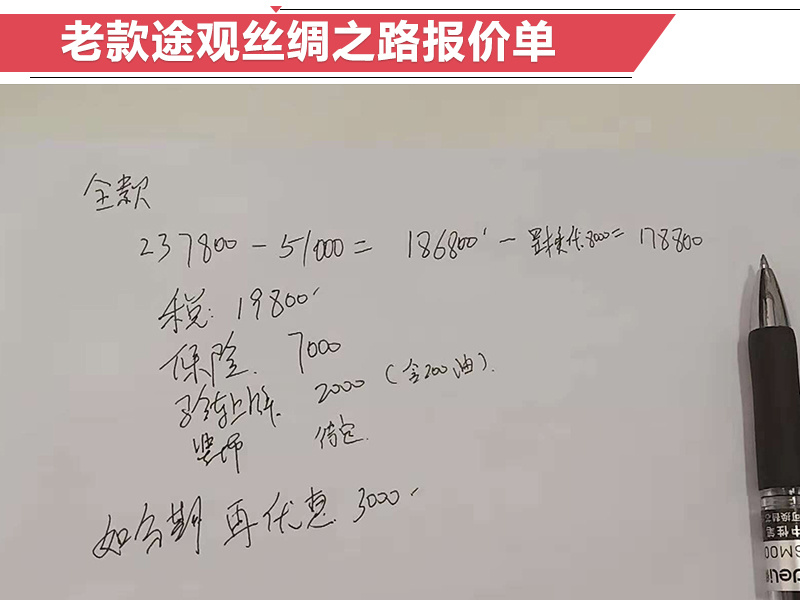 老款途观丝绸之路报价单
全款
237800 - 51000 = 186800 - 置换优8000= 178800
税: 19800
保险. 7000
验车上牌. 2000 (含200油).
装饰 待定.
如分期 再优惠 3000
中性笔
可换替芯
deli